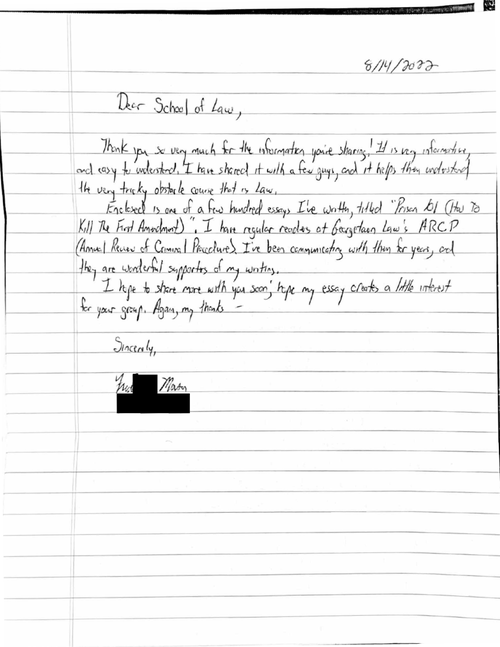 8/14/2022
Dear School of Law,
Thank you so very much for the information you're sharing! It is very informative,
and easy to understand. I have shared it with a few guys, and it helps them understand
the very tricky obstacle course that is Law.
Enclosed is one of a few hundred essays I've written, titled "Prison 101 (How To
Kill The First Amendment)". I have regular readers at Georgetown Law's ARCP
(Annual Review of Criminal Procedure). I've been communicating with them for years, and
they are wonderful supporters of my writing.
I hope to share more with you soon; hope my essay creates a little interest
for your group. Again, my thanks -
Sincerely,